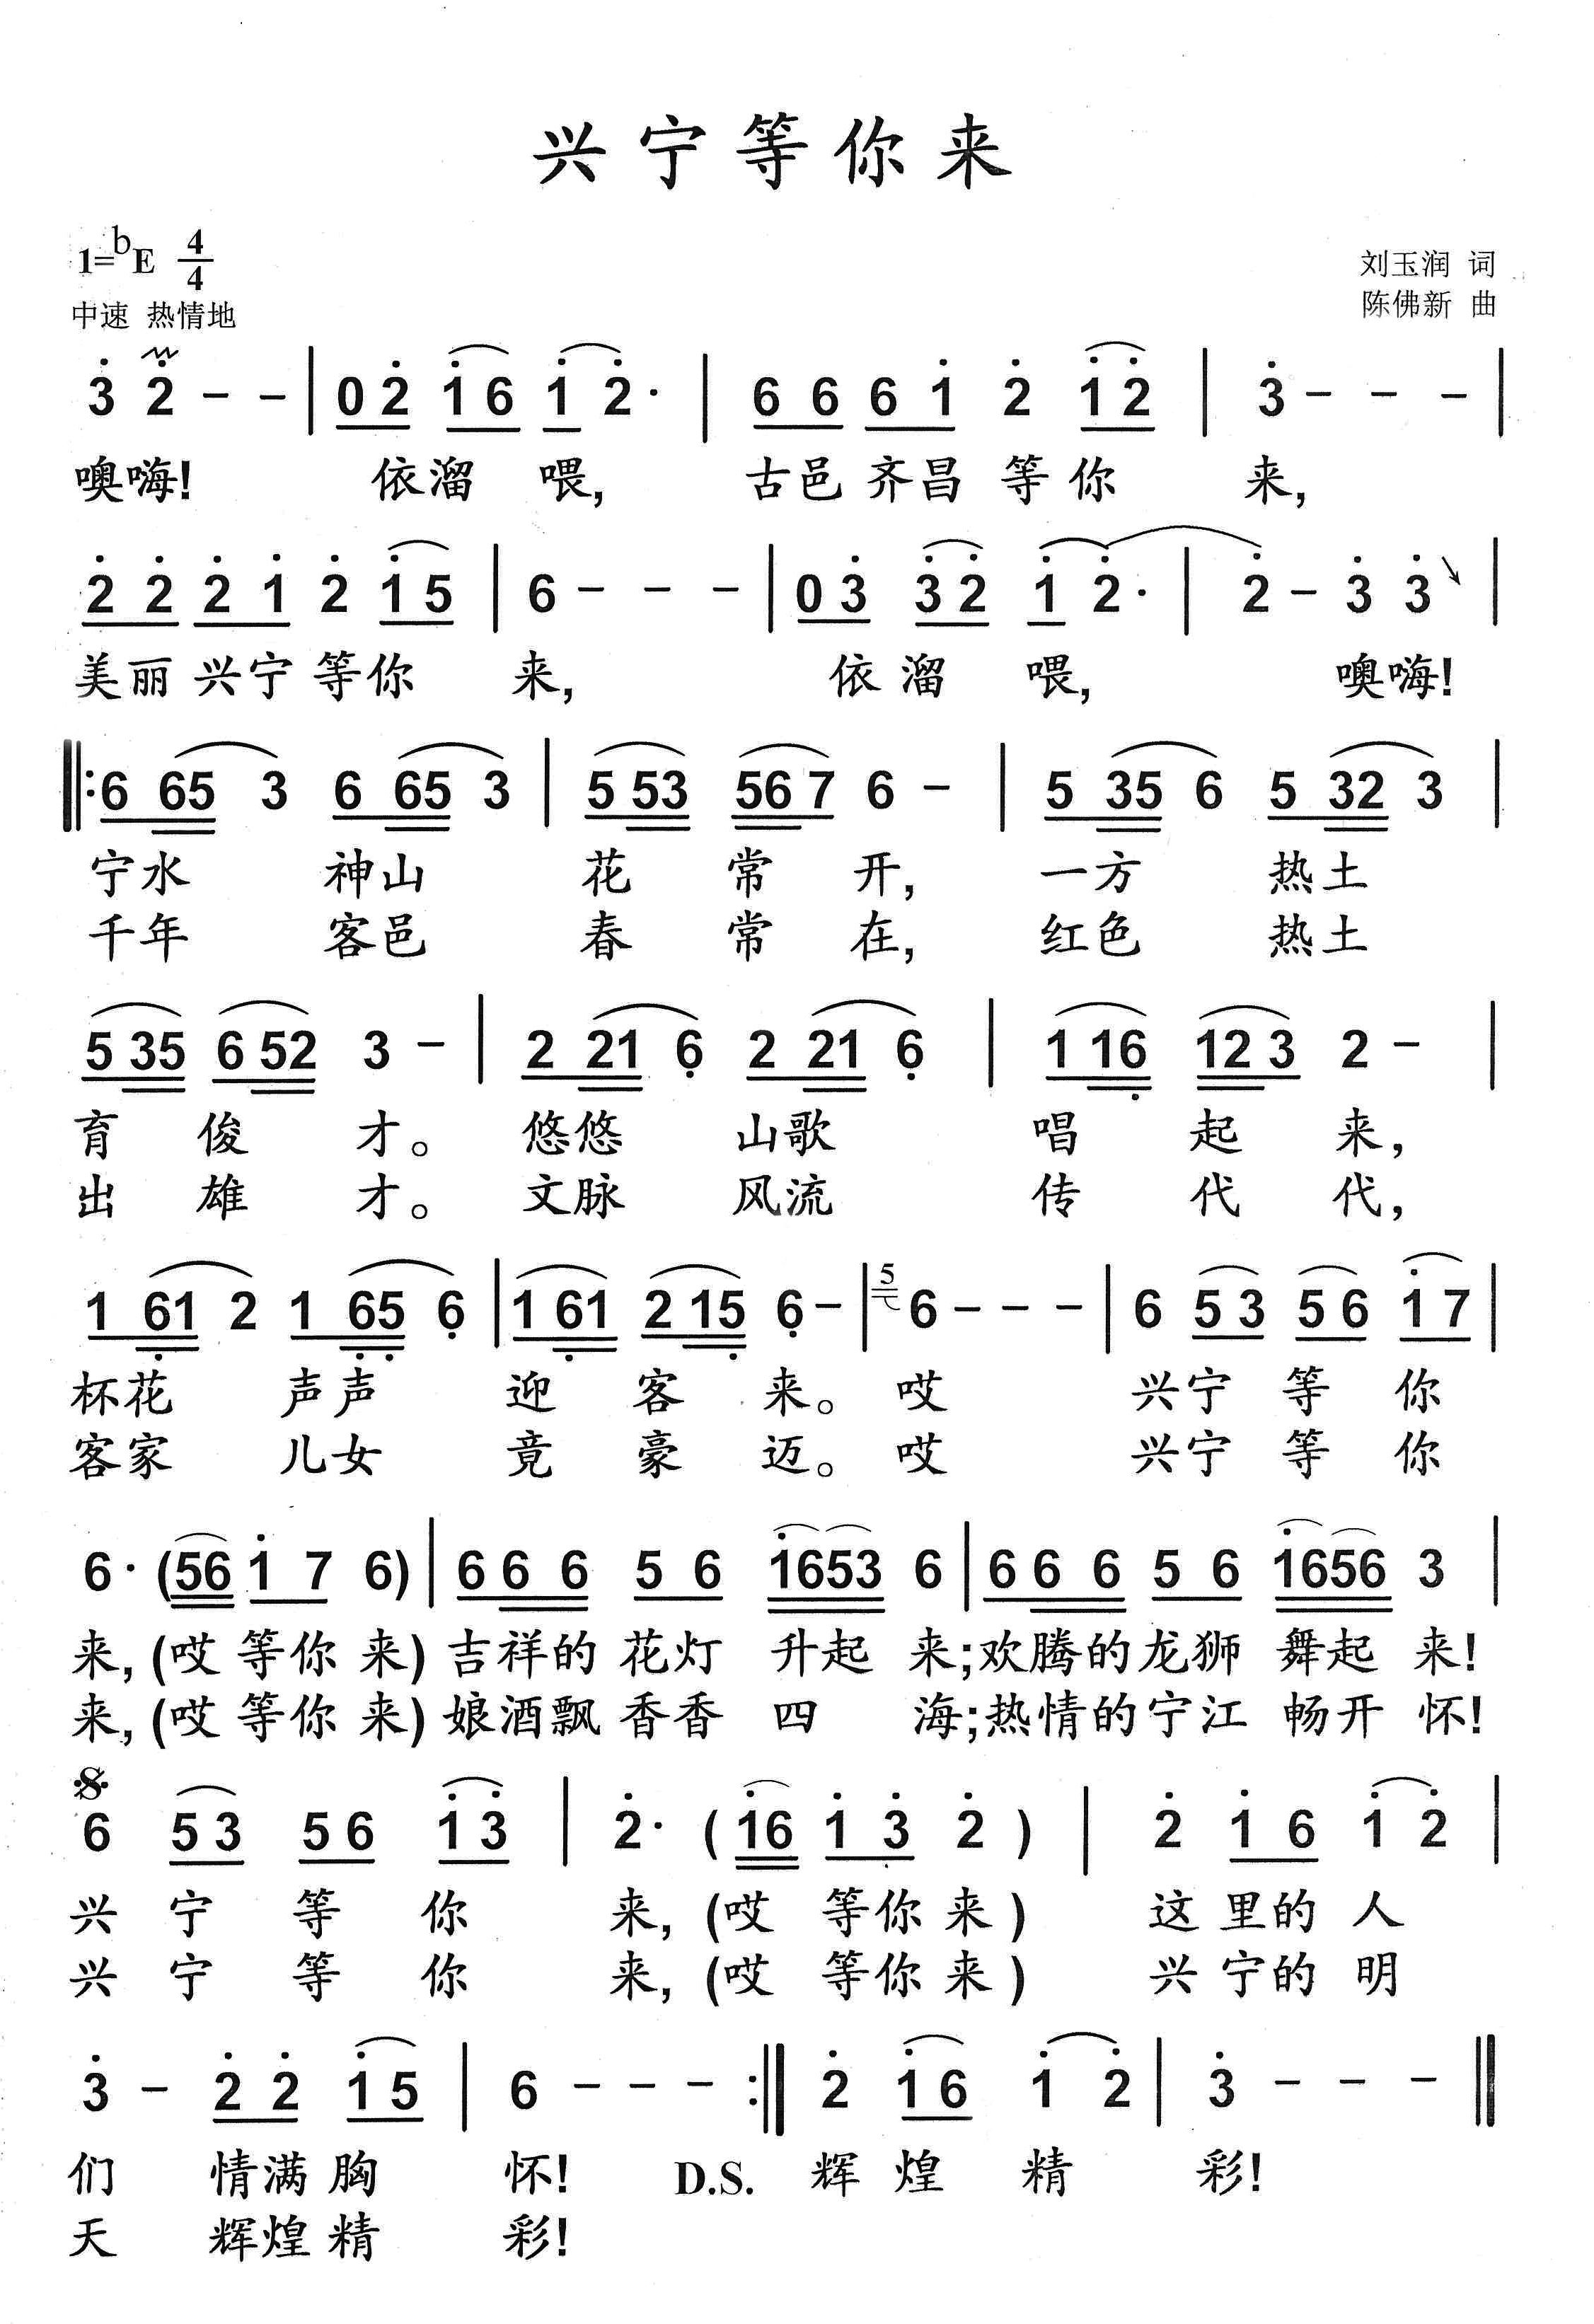 兴宁等你来
1=bE 4/4
刘玉润 词
中速 热情地
陈佛新 曲
3̇ 2̇ - - | 0 2̇ 1̇ 6 1̇ 2̇· | 6 6 6 1̇ 2̇ 1̇ 2̇ | 3̇ - - - |
噢嗨! 依溜 喂, 古邑齐昌等你 来,
2̇ 2̇ 2̇ 1̇ 2̇ 1̇ 5 | 6 - - - | 0 3̇ 3̇ 2̇ 1̇ 2̇· | 2̇ - 3̇ 3̇↘ |
美丽兴宁等你 来, 依溜 喂, 噢嗨!
‖: 6 65 3 6 65 3 | 5 53 56 7 6 - | 5 35 6 5 32 3 |
宁水 神山 花 常 开, 一方 热土
千年 客邑 春 常 在, 红色 热土
5 35 6 52 3 - | 2 21 6̣ 2 21 6̣ | 1 16̣ 12 3 2 - |
育 俊 才。 悠悠 山歌 唱 起 来,
出 雄 才。 文脉 风流 传 代 代,
1 6̣1 2 1 6̣5̣ 6̣ | 1 6̣1 2 15̣ 6̣ - | 5 6 - - - | 6 5 3 5 6 1̇ 7 |
杯花 声声 迎 客 来。 哎 兴宁 等 你
客家 儿女 竟 豪 迈。 哎 兴宁 等 你
6· (56 1̇ 7 6) | 6 6 6 5 6 1̇653 6 | 6 6 6 5 6 1̇656 3 |
来,(哎 等你 来) 吉祥的 花灯 升起 来;欢腾的龙狮 舞起 来!
来,(哎 等你 来) 娘酒飘 香香 四 海;热情的宁江 畅开 怀!
𝄋
6 5 3 5 6 1̇ 3̇ | 2̇· (1̇6 1̇ 3̇ 2̇) | 2̇ 1̇ 6 1̇ 2̇ |
兴 宁 等 你 来,(哎 等你来) 这里的 人
兴 宁 等 你 来,(哎 等你来) 兴宁的 明
3̇ - 2̇ 2̇ 1̇ 5 | 6 - - - :‖ 2̇ 1̇ 6 1̇ 2̇ | 3̇ - - - ‖
们 情满胸 怀! D.S. 辉煌 精 彩!
天 辉煌精 彩!